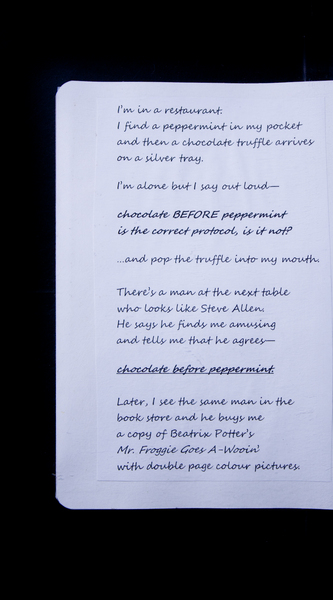 I'm in a restaurant.
I find a peppermint in my pocket
and then a chocolate truffle arrives
on a silver tray.
I'm alone but I say out loud—
chocolate BEFORE peppermint
is the correct protocol, is it not?
...and pop the truffle into my mouth.
There's a man at the next table
who looks like Steve Allen.
He says he finds me amusing
and tells me that he agrees—
chocolate before peppermint.
Later, I see the same man in the
book store and he buys me
a copy of Beatrix Potter's
Mr. Froggie Goes A-Wooin'
with double page colour pictures.